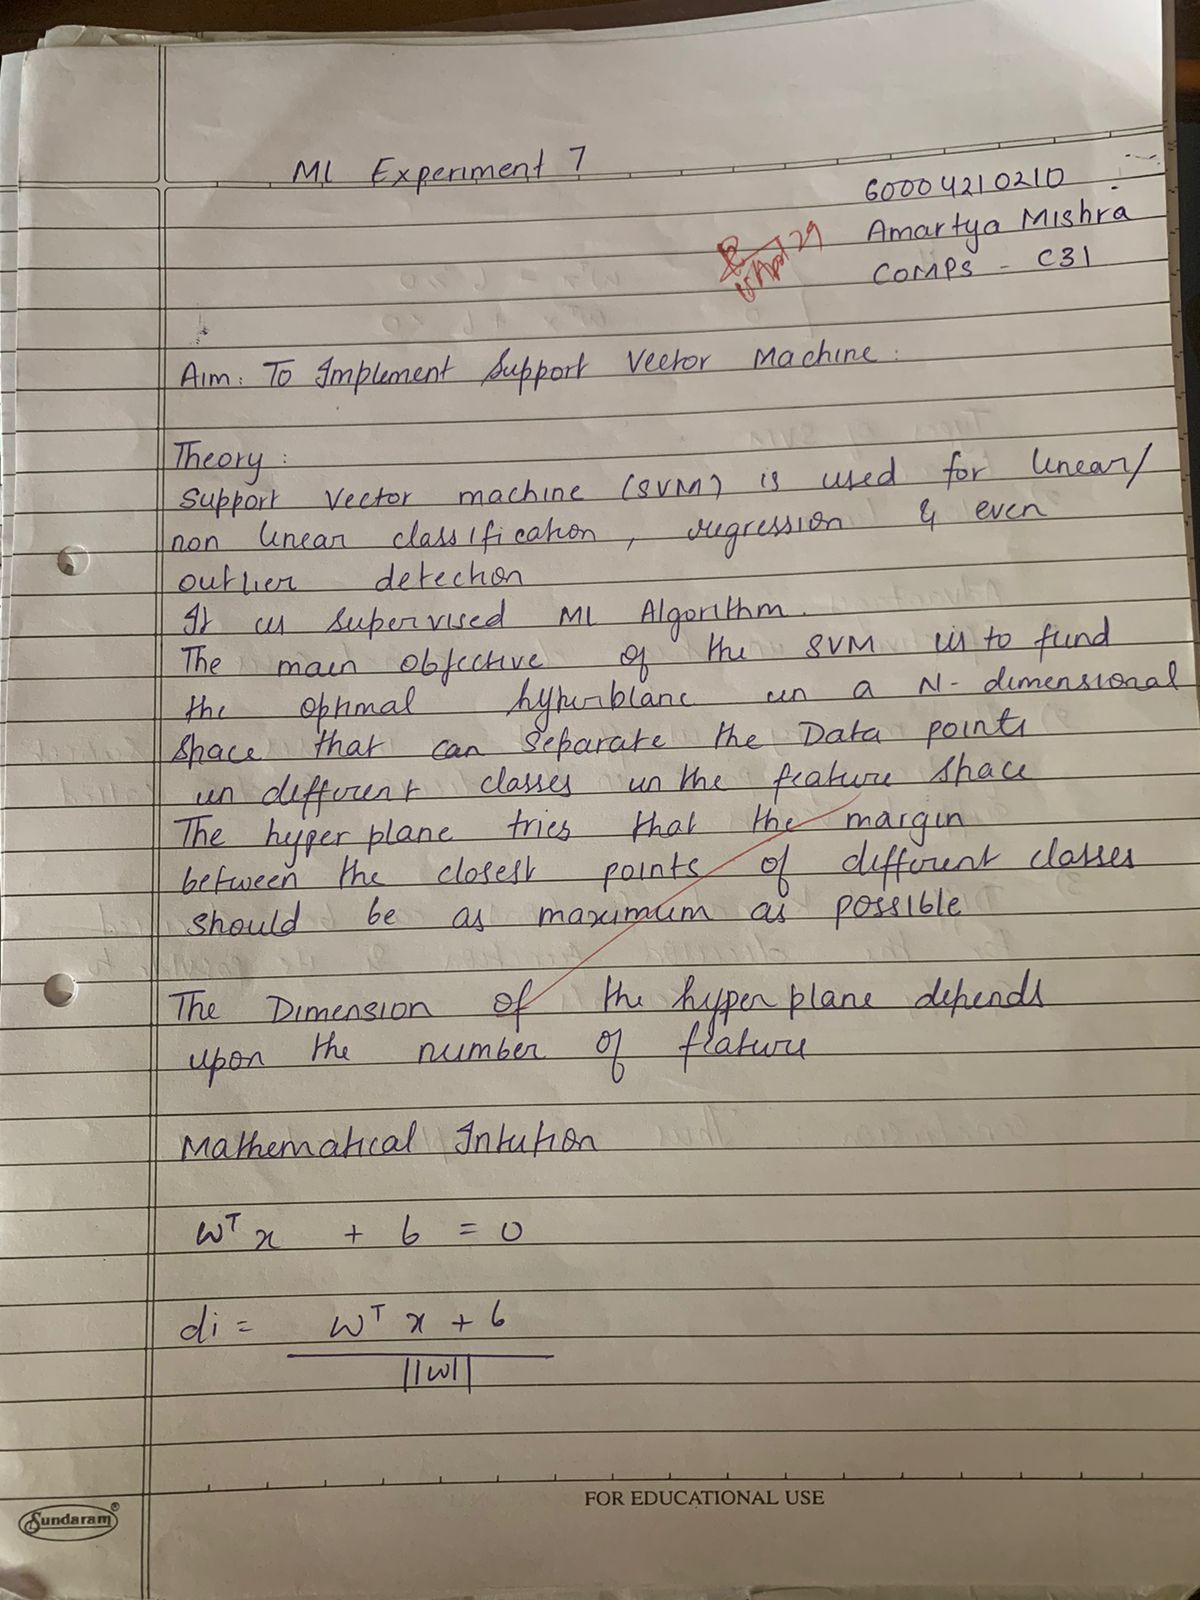 ML Experiment 7
60004210210
Amartya Mishra
COMPS - C31
Aim: To Implement Support Vector Machine.
Theory:
Support Vector machine (SVM) is used for linear/
non linear classification, regression & even
outlier detection
It is supervised ML Algorithm.
The main objective of the SVM is to find
the optimal hyperplane in a N-dimensional
space that can separate the Data points
in different classes in the feature space
The hyper plane tries that the margin
between the closest points of different classes
should be as maximum as possible
The Dimension of the hyper plane depends
upon the number of feature
Mathematical Intution
wᵀx + b = 0
di = wᵀ x + b
||w||
FOR EDUCATIONAL USE
Sundaram®